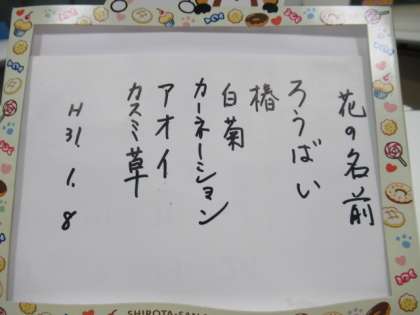 花の名前
ろうばい
椿
白菊
カーネーション
アオイ
カスミ草
H31.1.8
SHIROTA-SAN